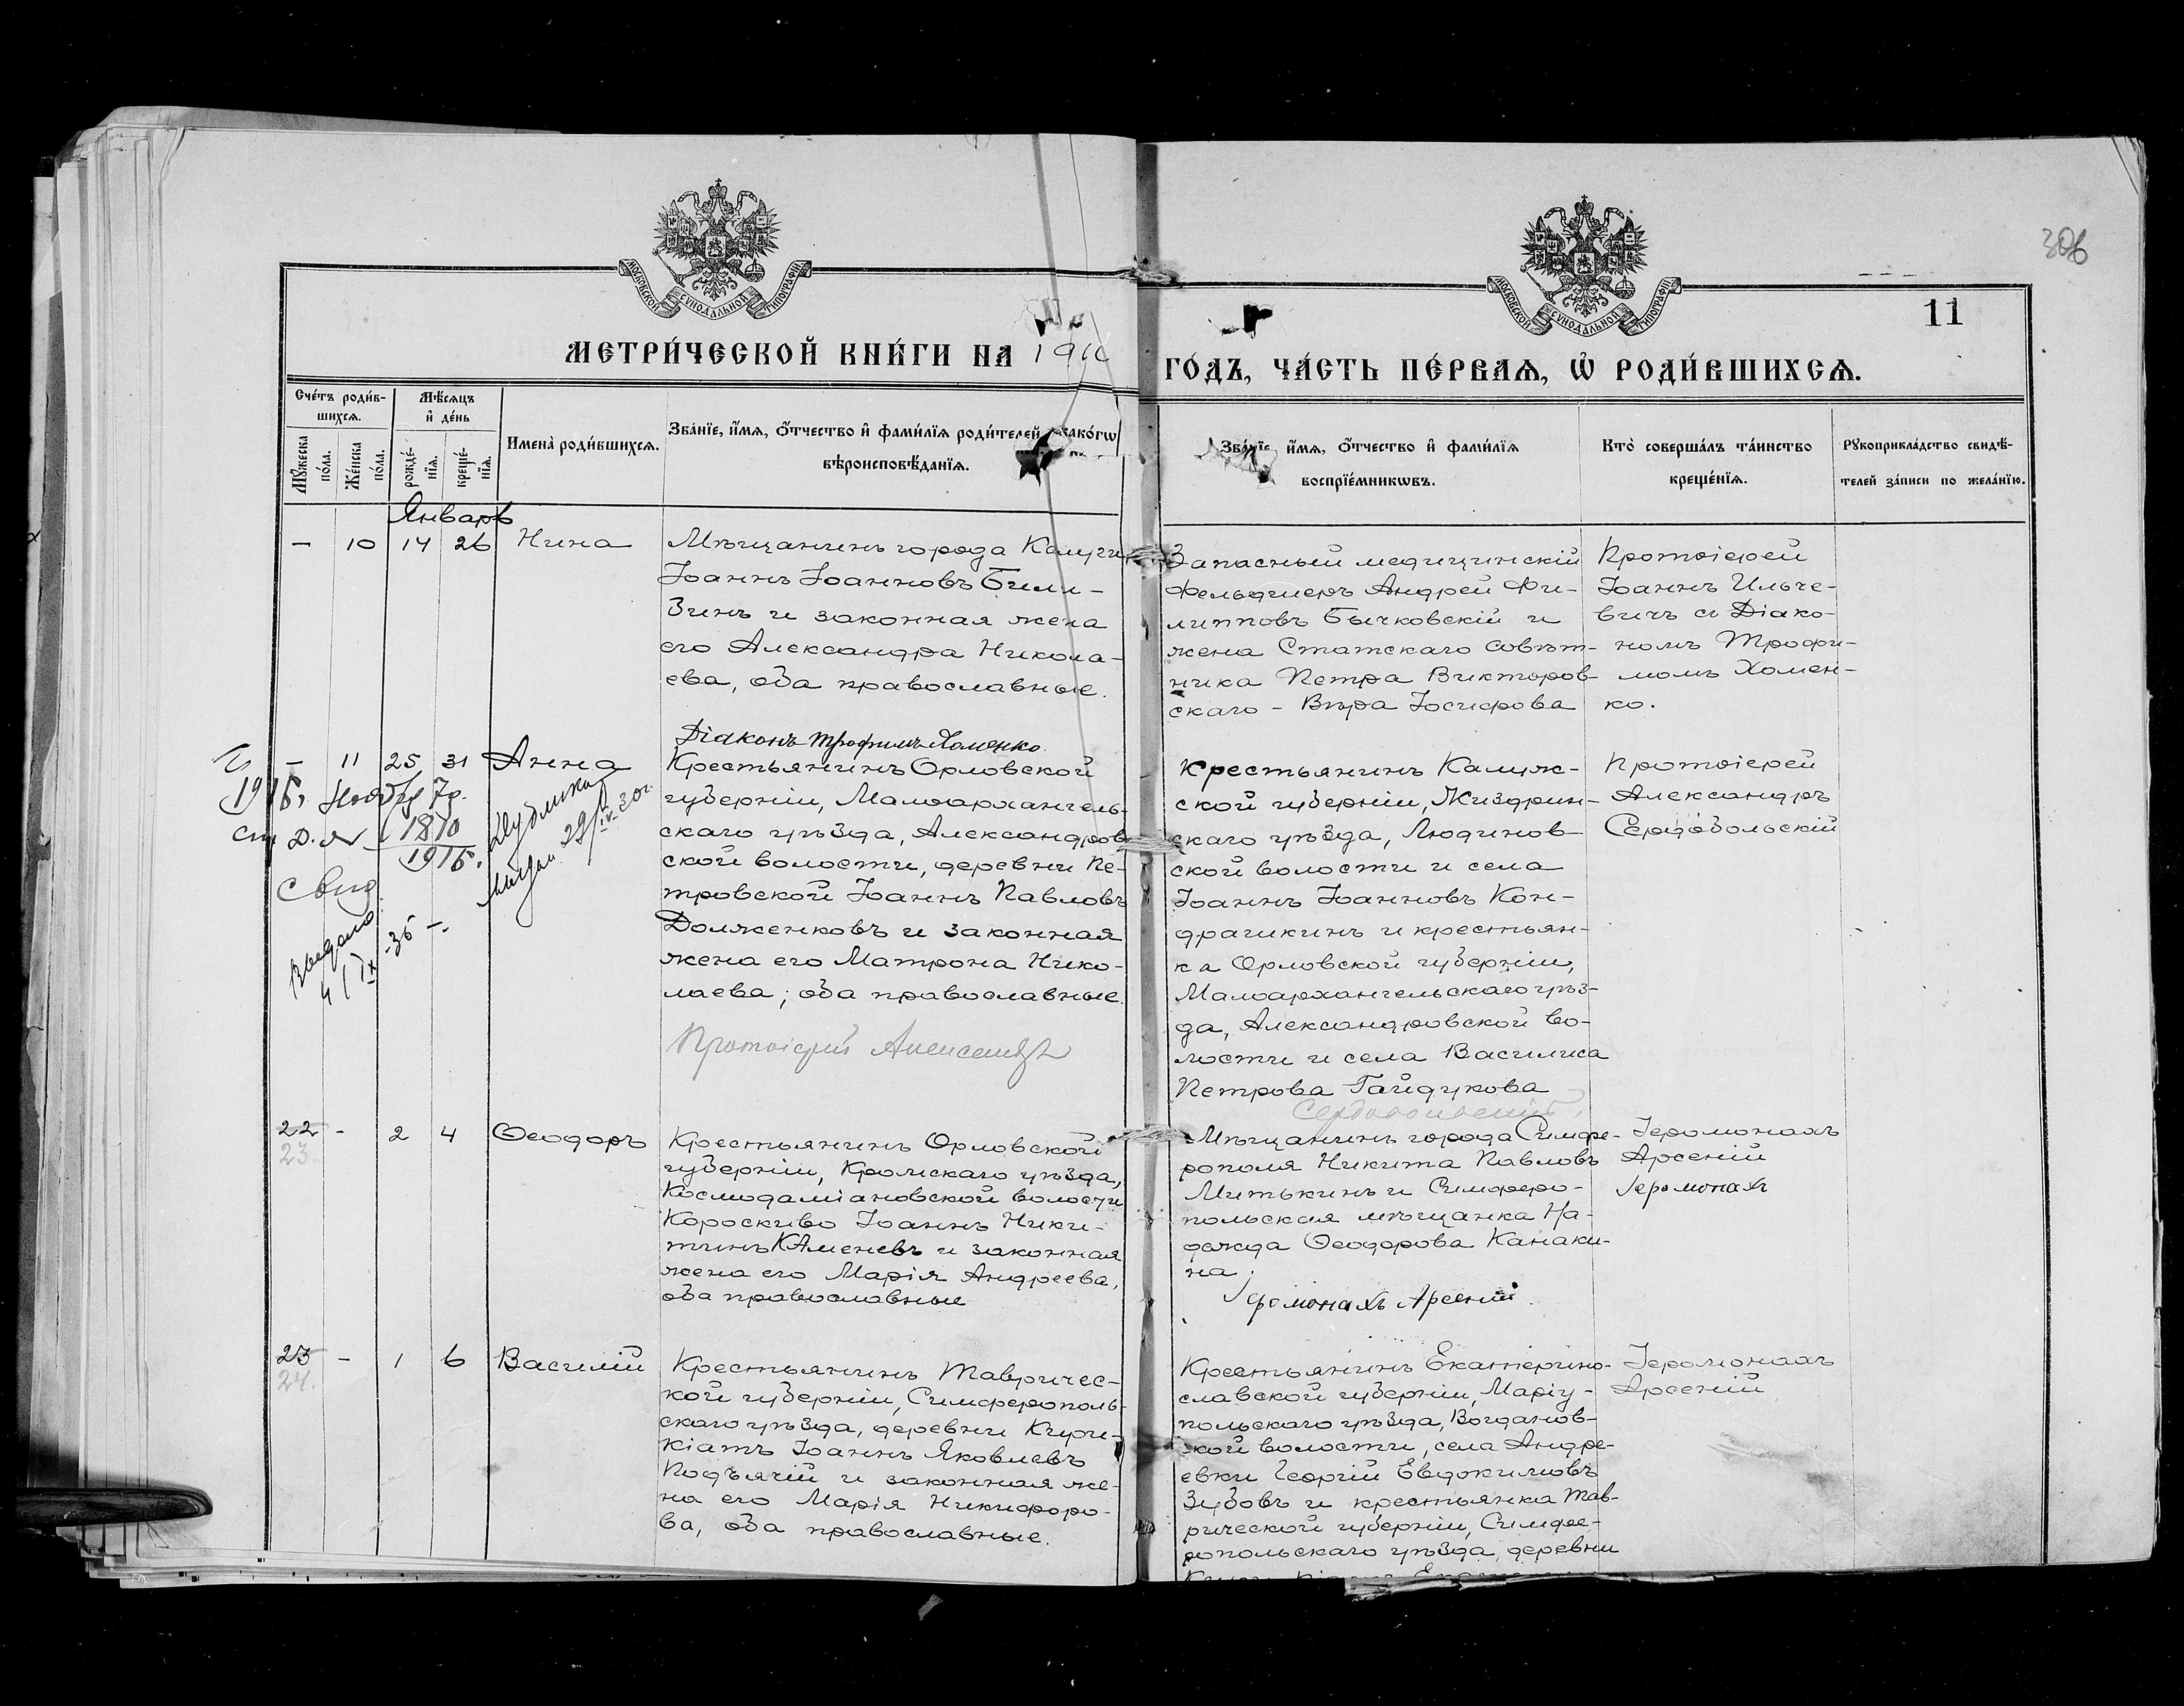 МОСКОВСКОЙ СѴНОДАЛЬНОЙ ТИПОГРАФІИ
МОСКОВСКОЙ СѴНОДАЛЬНОЙ ТИПОГРАФІИ
306
11
МЕТРИ́ЧЕСКОЙ КНИ́ГИ НА 191
ГО́ДЪ, ЧА́СТЬ ПЕ́РВАѦ, Ѡ҆ РОДИ́ВШИХСѦ.
Сче́тъ роди́в-
шихсѧ.
Мѣ́сѧцъ
и҆ де́нь
Мꙋ́жеска
по́ла.
Же́нска
по́ла.
рожде́-
нїѧ.
креще́-
нїѧ.
Имена̀ роди́вшихсѧ.
Зва́нїе, и҆́мѧ, ѻ҆́тчество и҆ фами́лїѧ роди́телей како́гѡ
вѣроисповѣ́данїѧ.
Зва́нїе, и҆́мѧ, ѻ҆́тчество и҆ фами́лїѧ
воспрїе́мникѡвъ.
Кто̀ соверша́лъ та́инство
креще́нїѧ.
Рꙋкоприкла́дство свидѣ́-
телей за́писи по жела́нїю.
Январь
— 10 14 26 Нина
Мѣщанинъ города Калуги
Іоаннъ Іоанновъ Били-
зинъ и законная жена
его Александра Никола-
ева, оба православные.
Діаконъ Трофимъ Хоменко
Запасный медицинскій
фельдшеръ Андрей Фи-
липповъ Бычковскій и
жена Статскаго совѣт-
ника Петра Викторов-
скаго - Вѣра Іосифова
Протоіерей
Іоаннъ Ильче-
вичъ съ Діако-
номъ Трофи-
момъ Хомен-
ко.
— 11 25 31 Анна
Крестьянинъ Орловской
губерніи, Малоархангель-
скаго уѣзда, Александров-
ской волости, деревни Пе-
тровской Іоаннъ Павловъ
Долженковъ и законная
жена его Матрона Нико-
лаева; оба православные.
Протоіерей Александръ
Крестьянинъ Калуж-
ской губерніи, Жиздрин-
скаго уѣзда, Людинов-
ской волости и села
Іоаннъ Іоанновъ Кон-
драшкинъ и крестьян-
ка Орловской губерніи,
Малоархангельскаго уѣз-
да, Александровской во-
лости и села Василиса
Петрова Гайдукова
Сердобольскій
Протоіерей
Александръ
Сердобольскій
1810
1916.
22 - 2 4 Ѳеодоръ
23.
Крестьянинъ Орловской
губерніи, Кромскаго уѣзда,
Космодаміановской волости
Короскиво Іоаннъ Ники-
тинъ Каменевъ и законная
жена его Марія Андреева,
оба православные
Мѣщанинъ города Симфе-
рополя Никита Павловъ
Митькинъ и Симферо-
польская мѣщанка На-
дежда Ѳеодорова Канаки-
на.
Іеромонахъ Арсеній
Іеромонахъ
Арсеній
Іеромонахъ
23 - 1 6 Василій
24.
Крестьянинъ Тавричес-
кой губерніи, Симферополь-
скаго уѣзда, деревни Кури-
кіатъ Іоаннъ Яковлевъ
Подъячій и законная же-
на его Марія Никифоро-
ва, оба православные.
Крестьянинъ Екатерино-
славской губерніи, Маріу-
польскаго уѣзда, Богданов-
ской волости, села Андре-
евки Георгій Евдокимовъ
Зубовъ и крестьянка Тав-
рической губерніи, Симфе-
ропольскаго уѣзда, деревни
Іеромонахъ
Арсеній